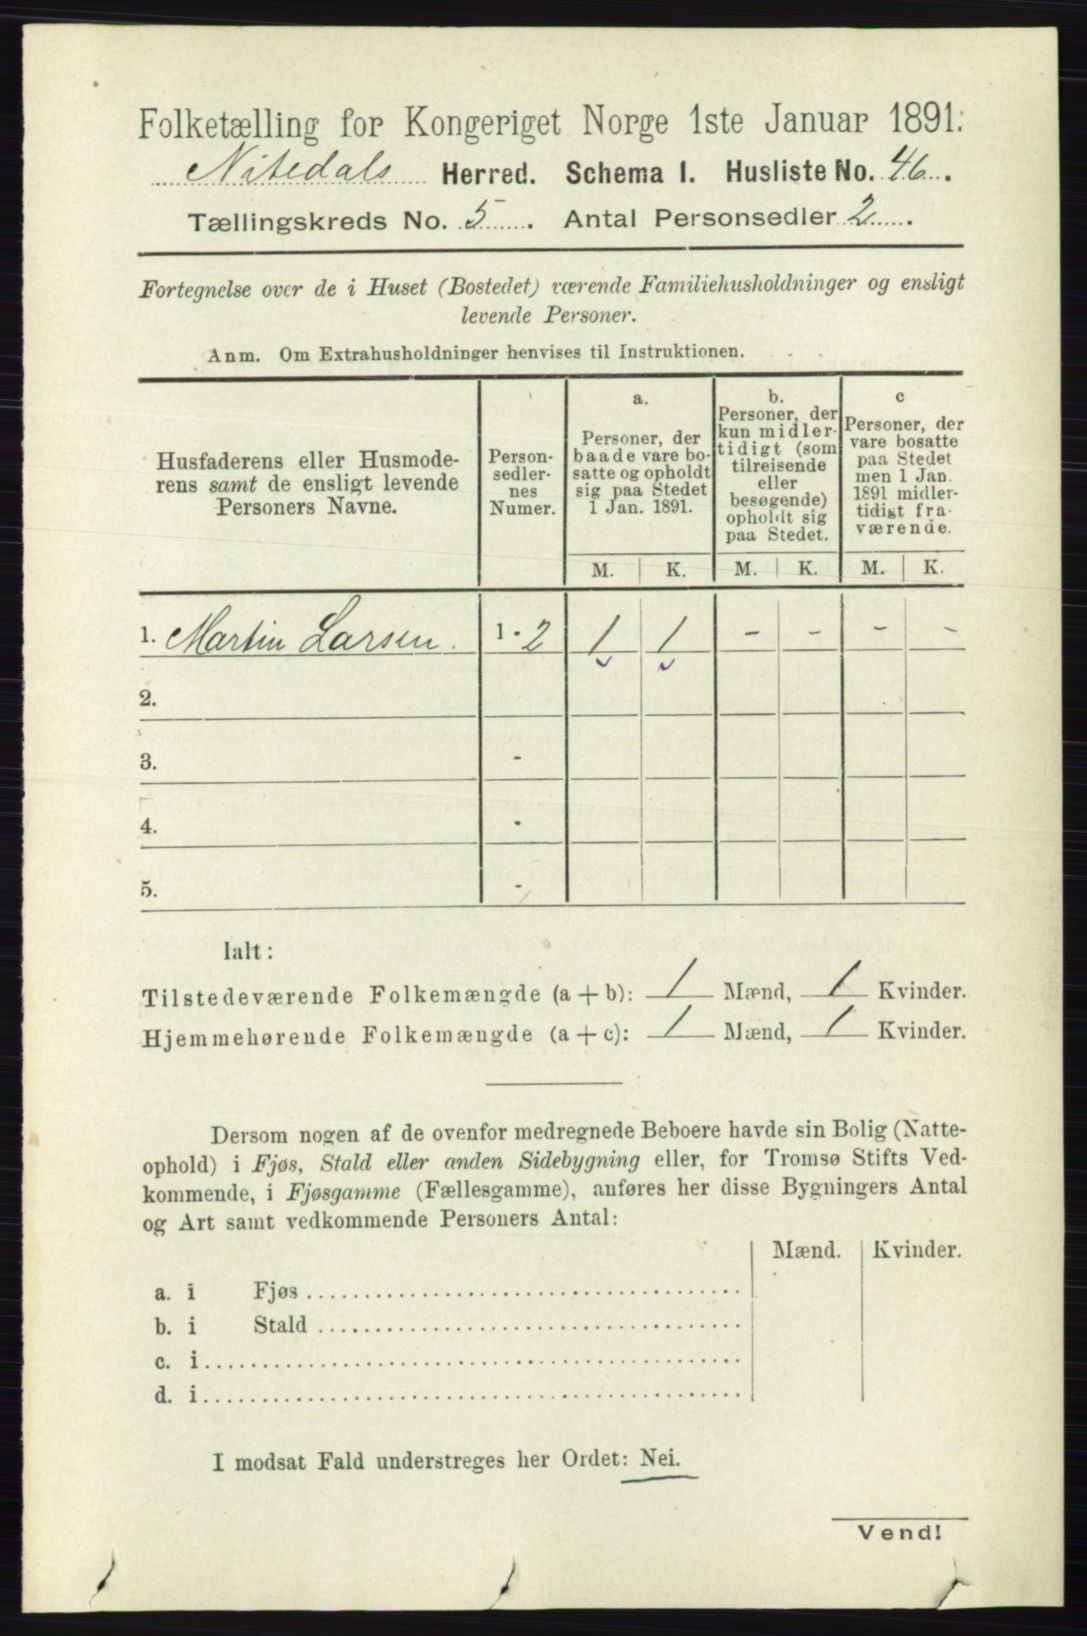 Folketælling for Kongeriget Norge 1ste Januar 1891.
Nitedals Herred. Schema I. Husliste No. 46.
Tællingskreds No. 5. Antal Personsedler 2.
Fortegnelse over de i Huset (Bostedet) værende Familiehusholdninger og ensligt
levende Personer.
Anm. Om Extrahusholdninger henvises til Instruktionen.
Husfaderens eller Husmode-
rens samt de ensligt levende
Personers Navne.
Person-
sedler-
nes
Numer.
a.
Personer, der
baade vare bo-
satte og opholdt
sig paa Stedet
1 Jan. 1891.
b.
Personer, der
kun midler-
tidigt (som
tilreisende
eller
besøgende)
opholdt sig
paa Stedet.
c
Personer, der
vare bosatte
paa Stedet
men 1 Jan.
1891 midler-
tidigt fra-
værende.
M. K. M. K. M. K.
1. Martin Larsen. 1 - 2 1 1 - - - -
2.
3. -
4. -
5. -
Ialt:
Tilstedeværende Folkemængde (a + b): 1 Mænd, 1 Kvinder.
Hjemmehørende Folkemængde (a + c): 1 Mænd, 1 Kvinder.
Dersom nogen af de ovenfor medregnede Beboere havde sin Bolig (Natte-
ophold) i Fjøs, Stald eller anden Sidebygning eller, for Tromsø Stifts Ved-
kommende, i Fjøsgamme (Fællesgamme), anføres her disse Bygningers Antal
og Art samt vedkommende Personers Antal:
Mænd. Kvinder.
a. i Fjøs
b. i Stald
c. i
d. i
I modsat Fald understreges her Ordet: Nei.
Vend!